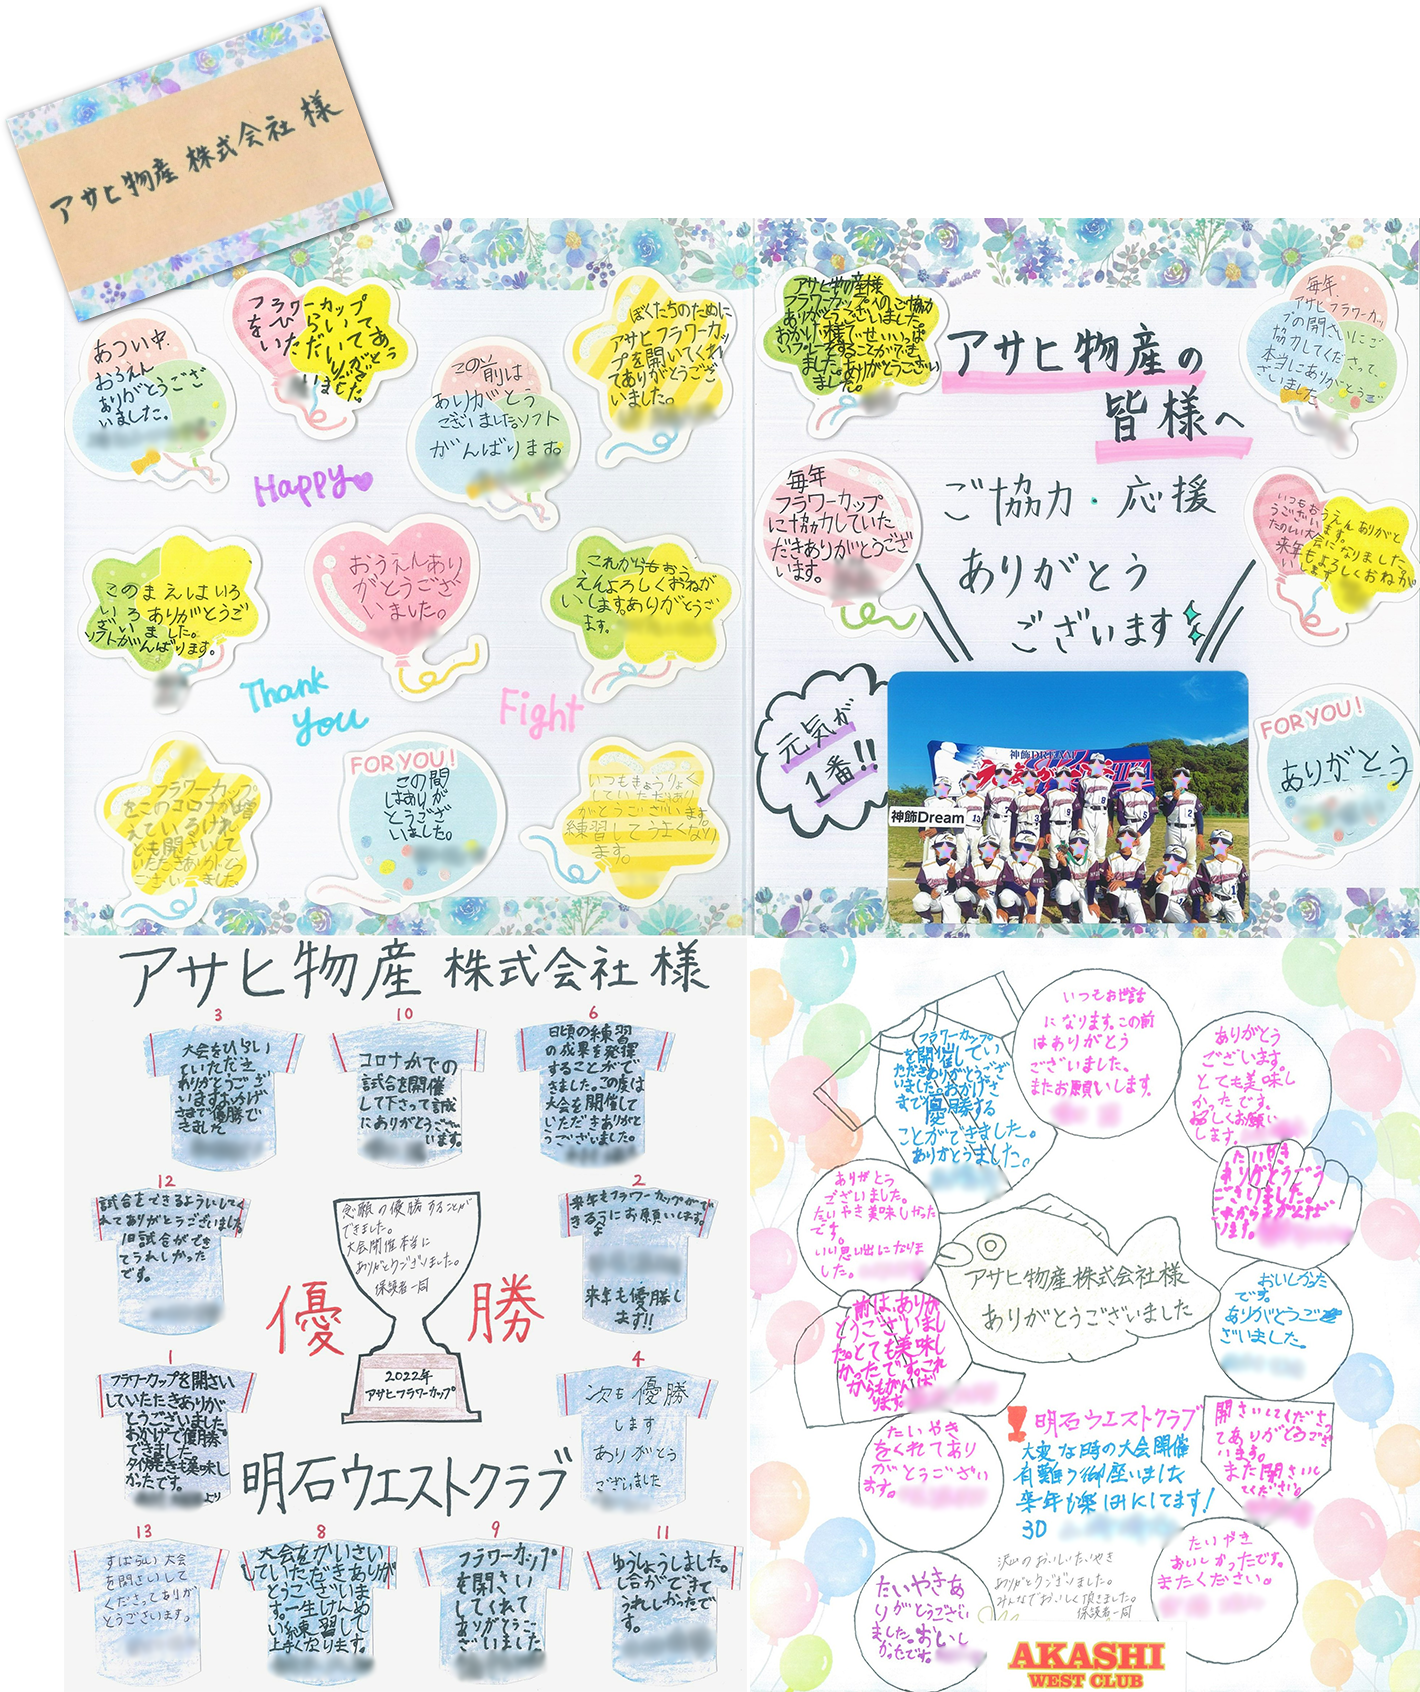 アサヒ物産 株式会社 様
あつい中、
おうえん
ありがとうござ
いました。
フラワーカップ
をひらいて
いただいてあり
がとう
いました。
この前は
ありがとう
ございましたソフト
がんばります。
ぼくたちのために
アサヒフラワーカッ
プを開いてくれ
てありがとうござ
いました。
Happy
このまえはいろ
いろありがとうご
ざいました。
ソフトがんばります。
おうえんあり
がとうござ
いました。
これからもおう
えんよろしくおねが
いします。ありがとうご
ます。
Thank
you
Fight
フラワーカップ
をこのコロナが増
えているけれ
ども開さいして
いただきありがとう
ございました。
FOR YOU!
この間
はありが
とうござ
いました。
いつもきょうりょく
していただきあり
がとうございます。
練習してうまくなり
ます。
アサヒ物産様
フラワーカップへのご協力
ありがとうございました。
おかげ様でせいいっぱ
いプレーをすることができ
ました。ありがとうござい
ました。
アサヒ物産の
皆様へ
ご協力・応援
ありがとう
ございます
毎年、
アサヒフラワーカッ
プの開さいにご
協力してくださって、
本当にありがとうご
ざいました。
毎年
フラワーカップ
に協力していた
だきありがとうござ
います。
いつもおうえんありがと
うございます。
たのしい大会になりました。
来年もよろしくおねが
いします
元気が
1番!!
神飾DREAM
神飾Dream
FOR YOU!
ありがとう
アサヒ物産 株式会社 様
3
大会をひらい
ていただき
ありがとうござ
いますおかげ
さまで優勝で
きました
10
コロナかでの
試合を開催
して下さって誠
にありがとうござい
います。
6
日頃の練習
の成果を発揮
することがで
きました。この度は
大会を開催して
いただきありがと
うございました。
12
試合をできるようにしてく
れてありがとうございました。
1日試合ができ
てうれしかった
です。
念願の優勝することが
できました。
大会開催本当に
ありがとうございました。
保護者一同
優勝
2022年
アサヒフラワーカップ
2
来年もフラワーカップがで
きるようにお願いします。
来年も優勝し
ます!!
1
フラワーカップを開さい
していただきありが
とうございました
おかげで優勝。
できました。
タイ焼きも美味し
かったです。
より
4
次も優勝
します
ありがとう
ございました
明石ウエストクラブ
13
すばらしい大会
を開さいして
くださってありが
とうございます。
8
大会をかいさい
していただきありが
とうございま
す。一生けんめ
い練習して
上手くなります。
9
フラワーカップ
を開さい
してくれて
ありがとうご
ざいました
11
ゆうしょうしました。
し合ができて
うれしかったで
す。
フラワーカップ
を開催してい
ただきありがとうござ
いました。おかげさ
まで優勝する
ことができました。
ありがとうました。
いつもお世話
になります。この前
はありがとう
ございました。
またお願いします。
ありがとう
ございます。
とても美味し
かったです。
よろしくお願い
します。
ありがとう
ございました。
たいやき美味しかった
です。
いい思い出になりま
した。
たいやき
ありがとうござう
ございました。
アサヒ物産株式会社様
ありがとうございました
おいしかった
です。
ありがとうご
ざいました。
前は、ありが
とうございまし
た。とても美味し
かったです。これ
からもがんば
ります。
たいやき
をくれてあり
がとうござい
ます。
明石ウエストクラブ
大変な時の大会開催
有難う御座いました
来年も楽しみにしてます!
30
開さいしてくださっ
てありがとうござ
います。
また開さいし
てください。
沢山のおいしいたいやき
ありがとうございました。
みんなでおいしく頂きました。
保護者一同
たいやき
おいしかったです。
またください。
たいやきあ
りがとうござい
ました。おいし
かったです。
AKASHI
WEST CLUB